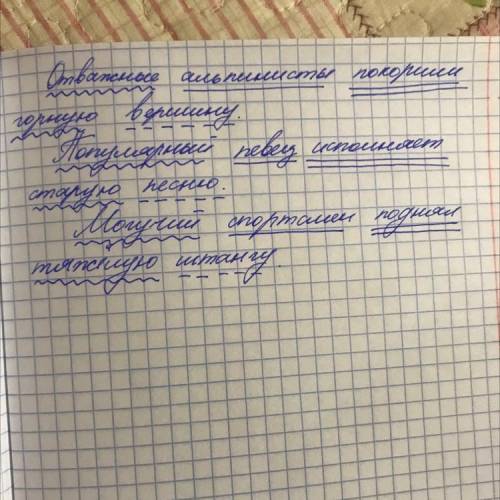 Отважные альпинисты покорили
горную вершину.
Популярный певец исполняет
старую песню.
Могучий спортсмен поднял
тяжёлую штангу.